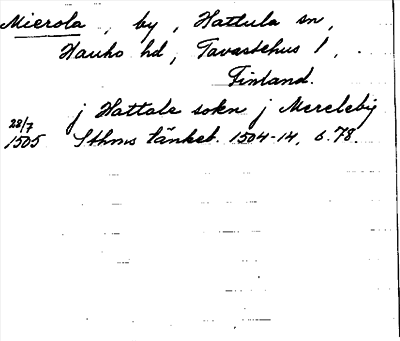 Mierola, by, Hattula sn,
Hauho hd, Tavastehus l,
Finland.
j Hattale sokn j Mereleby
28/7 1505 Sthms tänkeb. 1504-14, s. 78.